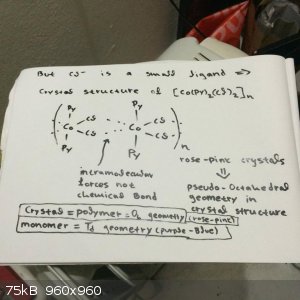 But Cl- is a small ligand ⇒
Crystal structure of [Co(Py)2(Cl)2]n
Py Py
Cl Cl
Co Co
Cl Cl n
Py Py
rose-pink crystals
intramolecular
forces not
chemical Bond
pseudo-Octahedral
geometry in
crystal structure
Crystal = polymer = Oh geometry (rose-pink)
monomer = Td geometry (purple-Blue)
75kB 960x960